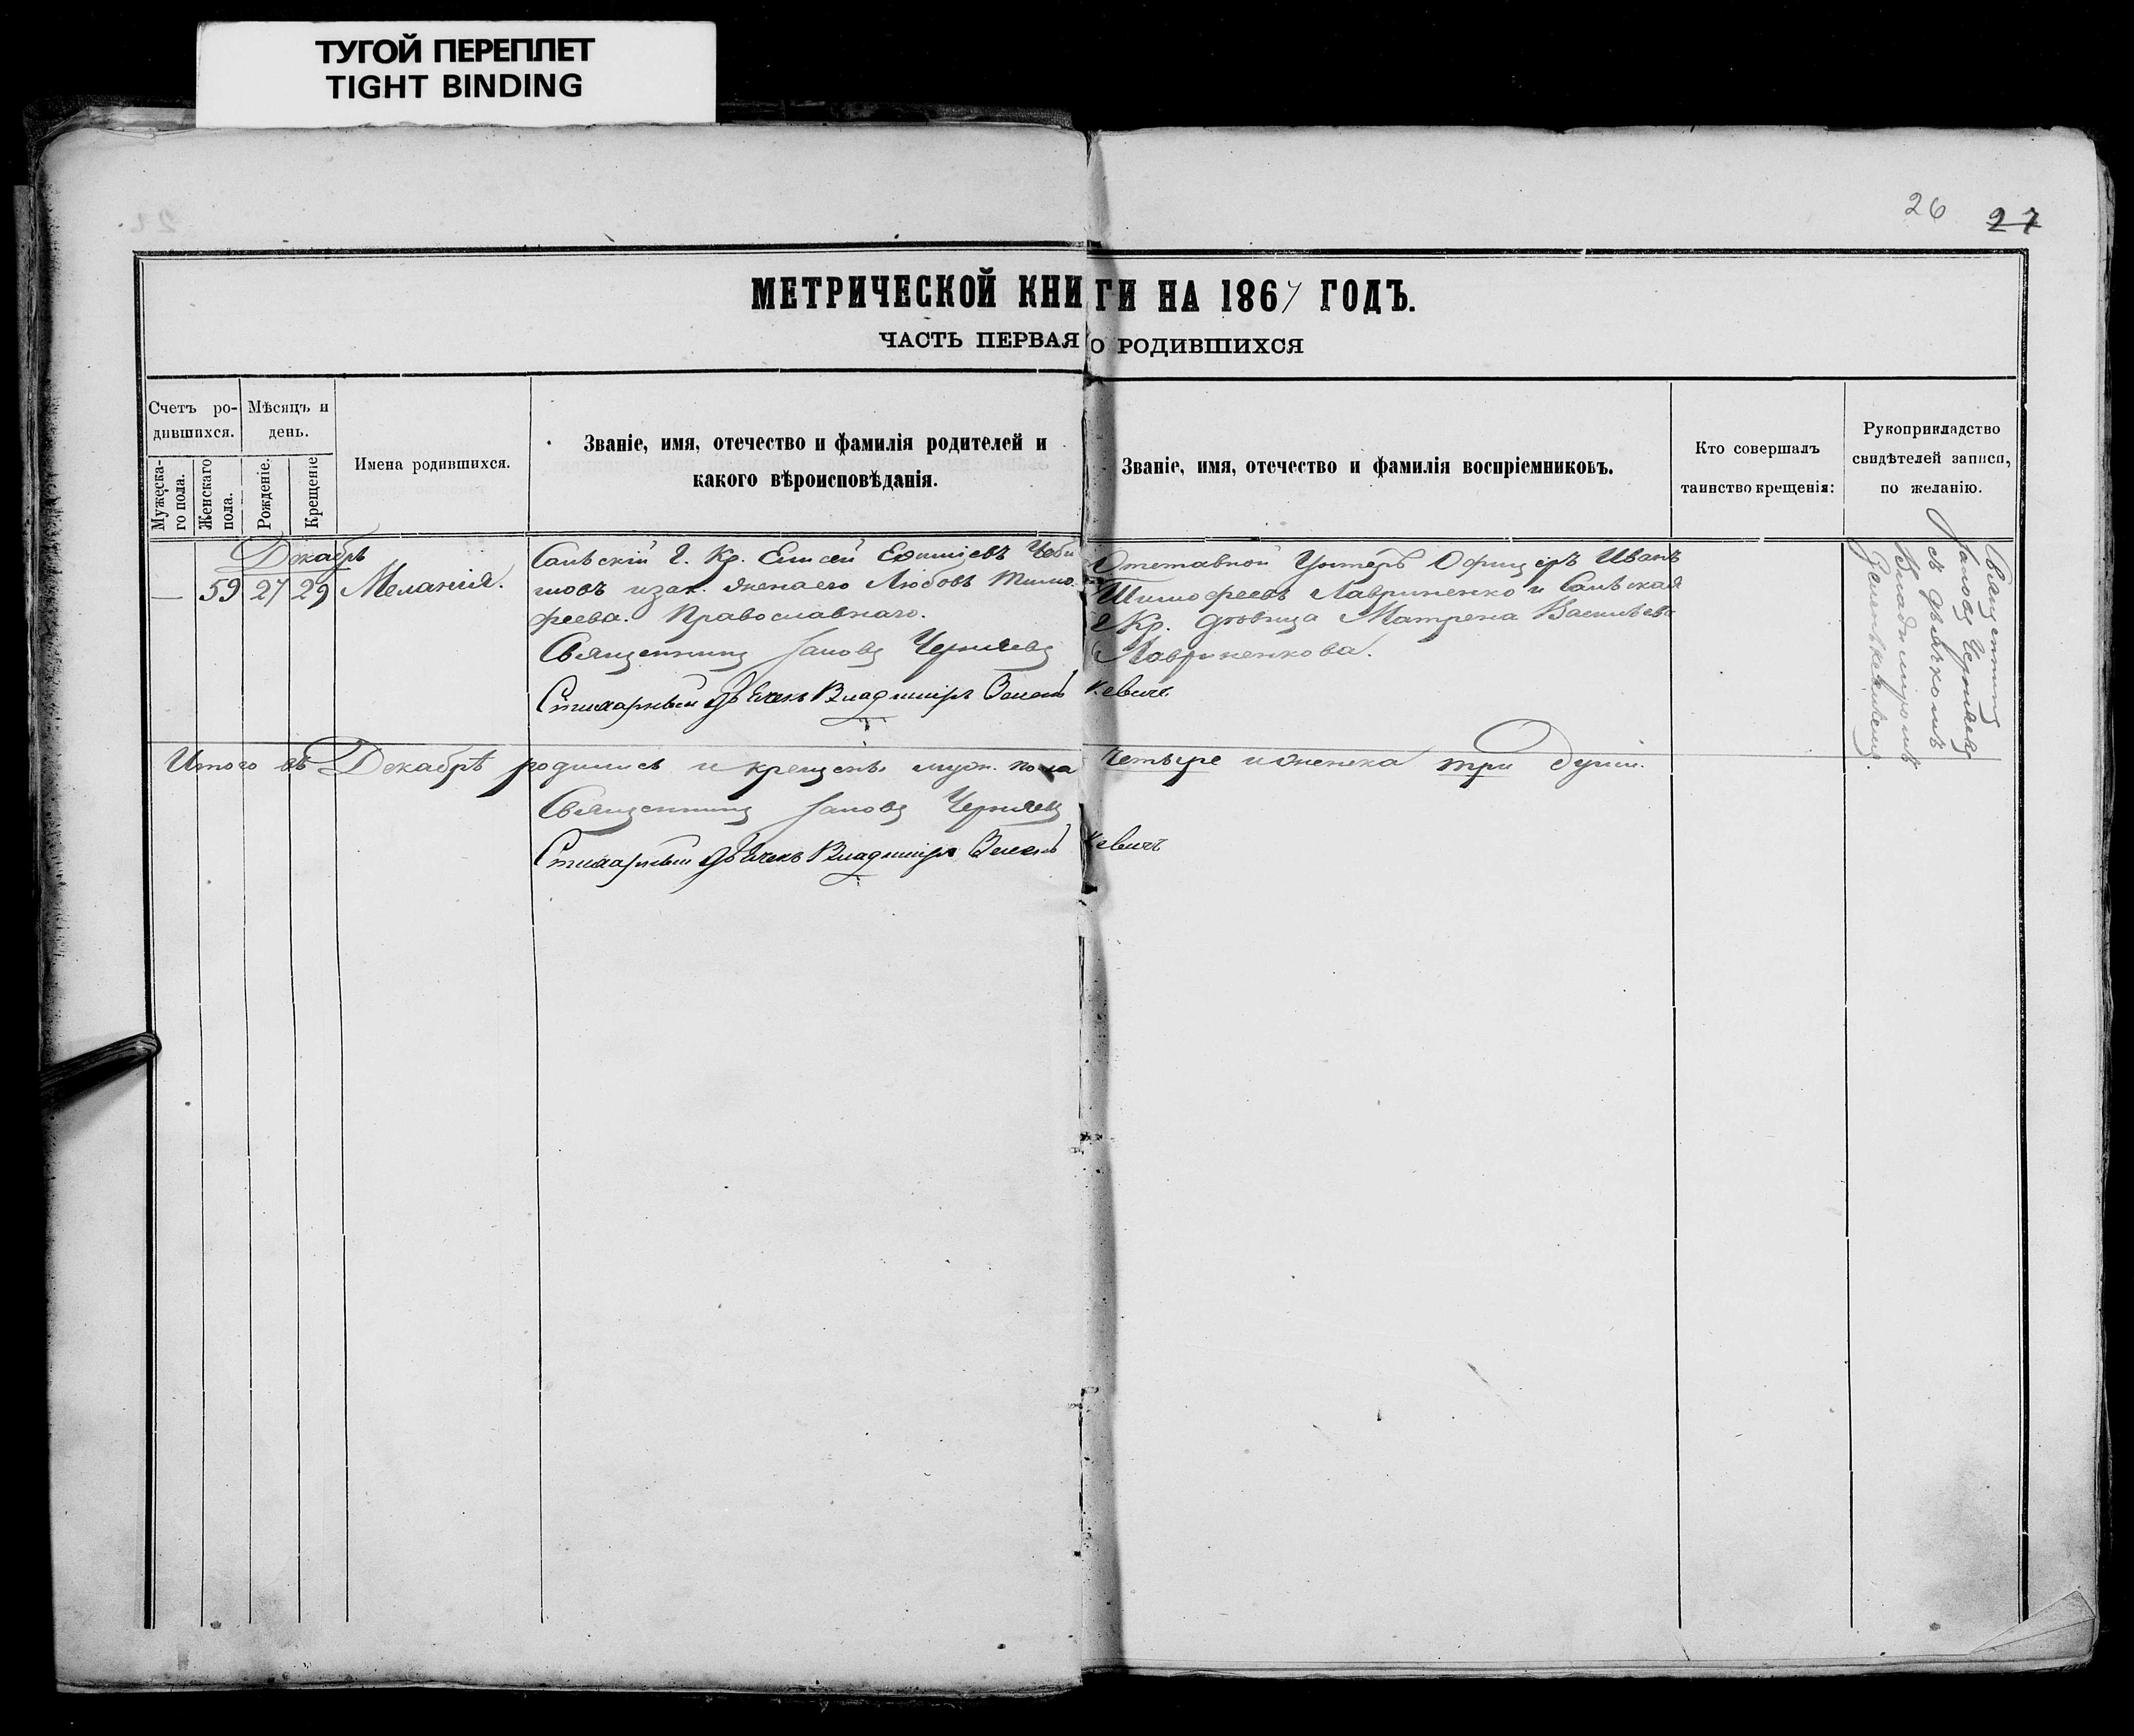 ТУГОЙ ПЕРЕПЛЕТ
TIGHT BINDING
26 27
МЕТРИЧЕСКОЙ КНИГИ НА 1867 ГОДЪ.
ЧАСТЬ ПЕРВАЯ О РОДИВШИХСЯ
Счетъ ро-
дившихся.
Мѣсяцъ и
день.
Мужеска-
го пола.
Женскаго
пола.
Рожденіе.
Крещеніе
Имена родившихся.
Званіе, имя, отечество и фамилія родителей и
какого вѣроисповѣданія.
Званіе, имя, отечество и фамилія воспріемниковъ.
Кто совершалъ
таинство крещенія:
Рукоприкладство
свидѣтелей записи,
по желанію.
Декабрь
— 59 27 29 Меланія.
Г. Кр. Елисей
изак. жена его Любовь Тимо-
феева. Православнаго.
Священникъ Іаковъ Черняевъ
Стихарный Дьячекъ Владиміръ Зеленкевичъ
Отставной Унтеръ Офицеръ Иванъ
Тимофеевъ Лавриненко и
Г Кр. дѣвица Матрена Васильева
Лавриненкова.
Священникъ
Іаковъ Черняевъ
съ дьячкомъ
Владимиромъ
Зеленкевичемъ.
Итого въ Декабрѣ родились и крещены муж. пола четыре и женска три души.
Священникъ Іаковъ Черняевъ
Стихарный Дьячекъ Владиміръ Зеленкевичъ